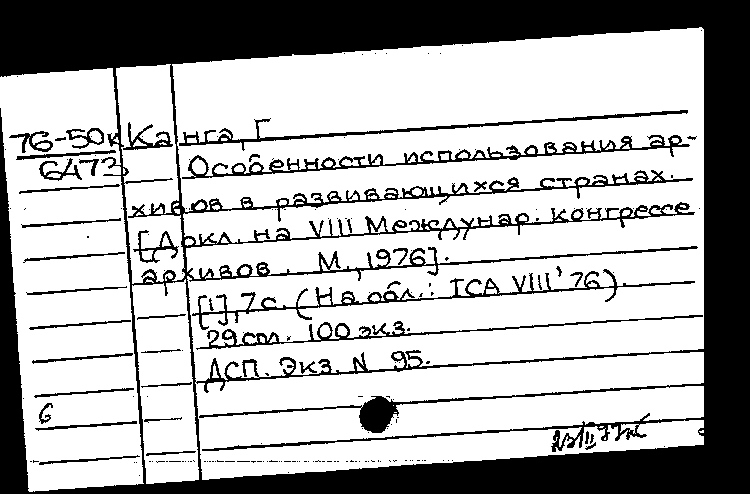 76-50к Канга, Г
6473 Особенности использования ар-
хивов в развивающихся странах.
[Докл. на VIII Междунар. конгрессе
архивов. М., 1976].
[1], 7с. (На обл.: ICA VIII' 76).
29см. 100 экз.
ДСП. Экз. N 95.
6